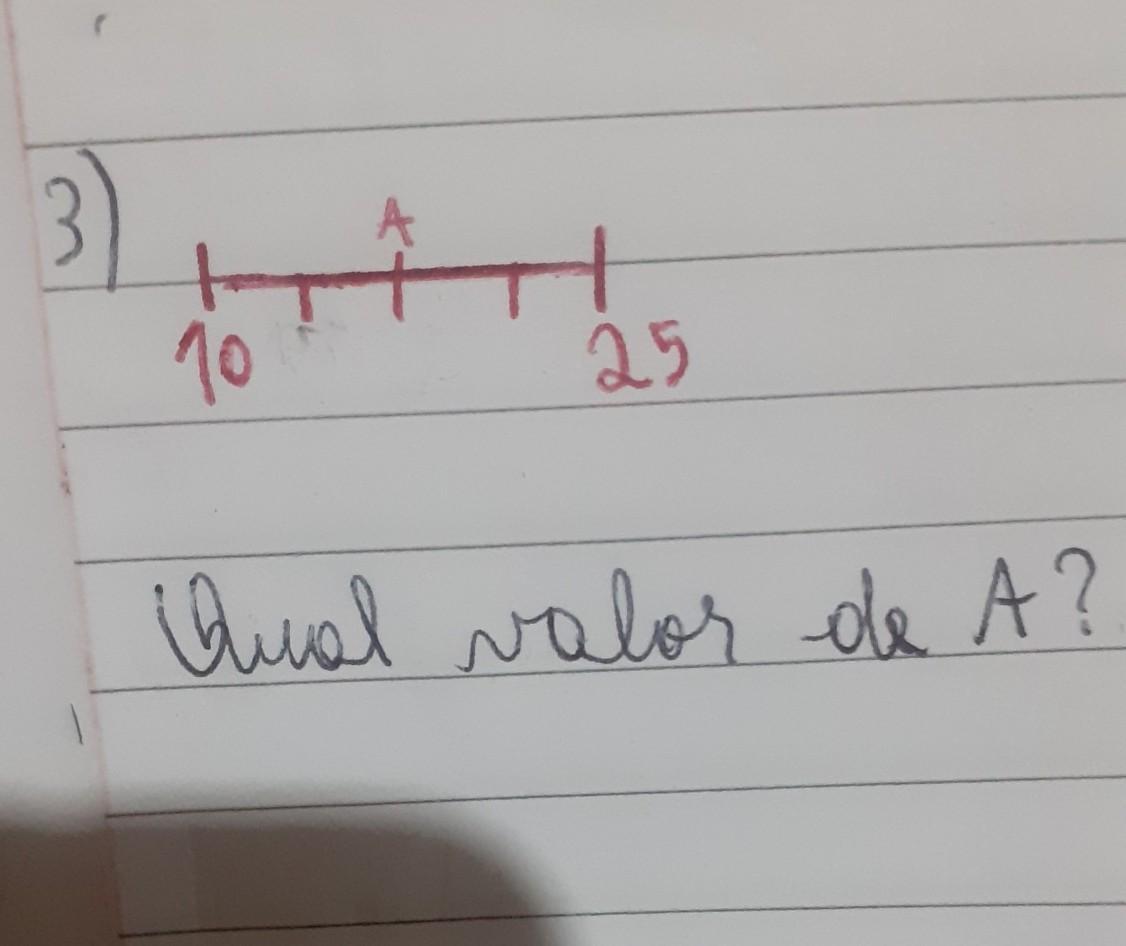 3)
A
10 25
Qual valor de A?